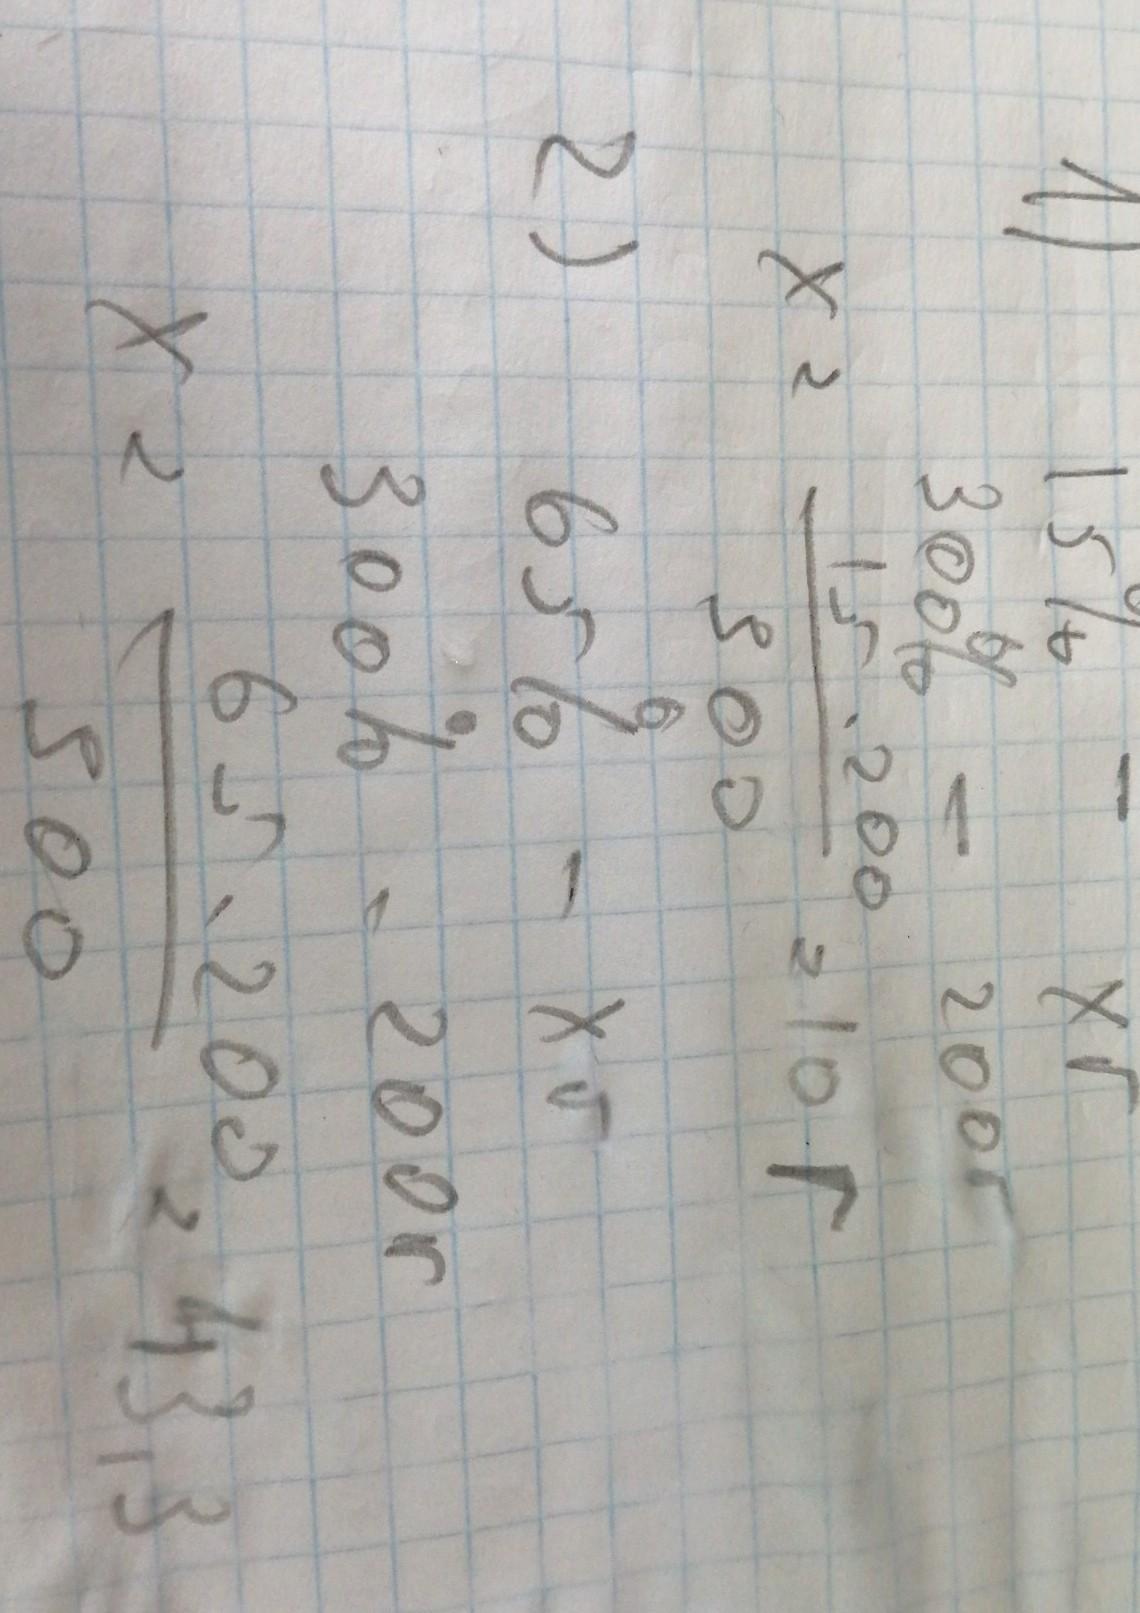 1) 15% - xг
300% - 200г
x = 15·200
300
= 10г
2) 65% - xг
300% - 200г
x = 65·200
300
= 43,3